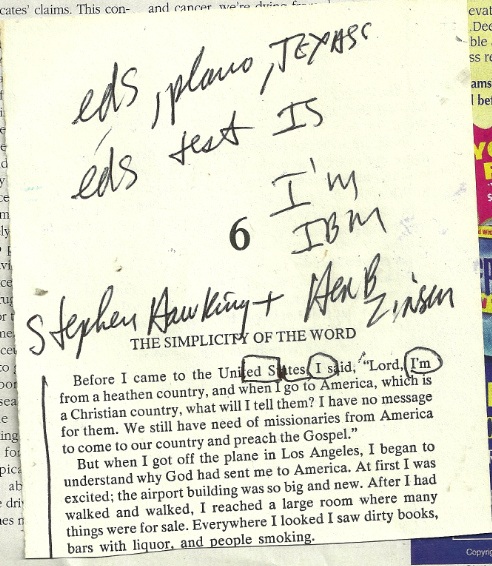 cates' claims. This con-
and cancer, we're dying
eds, plano, TEXAS
eds test IS
I'm
IBM
6
Stephen Hawking + Hen B
Zinsen
THE SIMPLICITY OF THE WORD
Before I came to the United States I said, "Lord, I'm
from a heathen country, and when I go to America, which is
a Christian country, what will I tell them? I have no message
for them. We still have need of missionaries from America
to come to our country and preach the Gospel."
But when I got off the plane in Los Angeles, I began to
understand why God had sent me to America. At first I was
excited; the airport building was so big and new. After I had
walked and walked, I reached a large room where many
things were for sale. Everywhere I looked I saw dirty books,
bars with liquor, and people smoking.